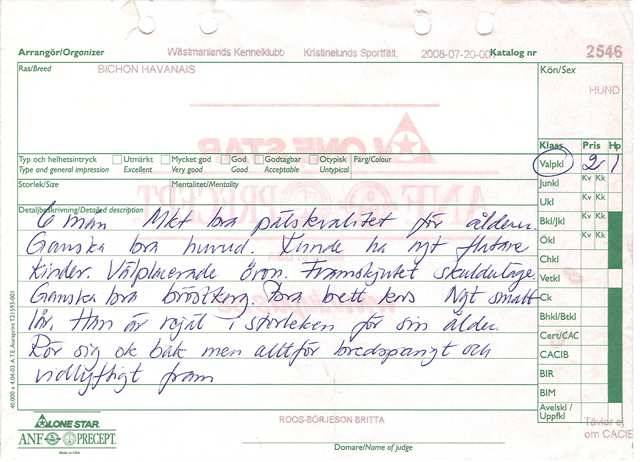 Arrangör/Organizer Västmanlands Kennelklubb Kristinelunds Sportfält. 2008-07-20-00 Katalog nr 2546
Ras/Breed BICHON HAVANAIS Kön/Sex
HUND
LONE STAR
Klass Pris Hp
Typ och helhetsintryck Utmärkt Mycket god God Godtagbar Otypisk Färg/Colour Valpkl 2 1
Type and general impression Excellent Very good Good Acceptable Untypical
Junkl Kv Kk
Storlek/Size Mentalitet/Mentality
ANF PRECEPT
Ukl Kv Kk
Detaljbeskrivning/Detailed description
6 mån Mkt bra pälskvalitet för åldern.
Bkl/Jkl Kv Kk
Ganska bra huvud. Kunde ha ngt flatare
Ökl Kv Kk
kinder. Välplacerade öron. Framskjutet skulderläge.
Chkl
Vetkl
Ganska bra bröstkorg. Bra brett kors Ngt smalt
Ck
lår. Han är rejäl i storleken för sin ålder.
Bhkl/Btkl
Rör sig ok bak men alltför bredspårigt och
Cert/CAC
CACIB
vidlyftigt fram
BIR
BIM
40,000 x 4.04.03 A.T.E. Auraprint T21593-001
Avelskl / Uppfkl
LONE STAR.
ANF PRECEPT.
Made in USA
ROOS-BÖRJESON BRITTA
Domare/Name of judge
Tävlar ej
om CACIB